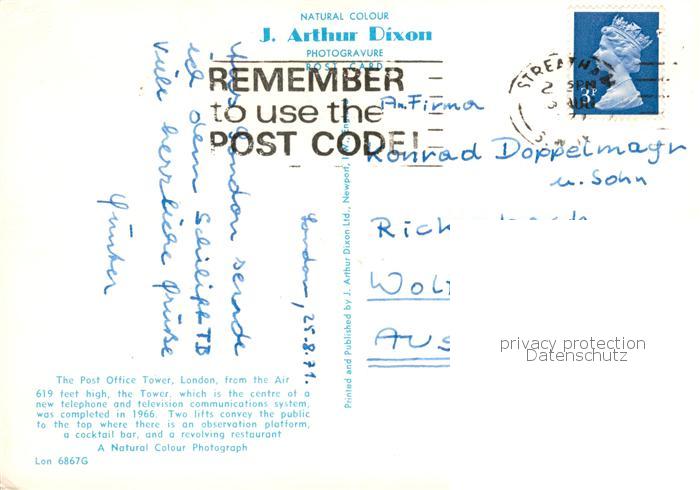 NATURAL COLOUR
J. Arthur Dixon
PHOTOGRAVURE
POST CARD
REMEMBER
to use the
POST CODE!
STREATHAM
3P
An Firma
Konrad Doppelmayr
u. Sohn
Rick
Wol
AUS
London, 25-8.71.
Aus London sende
ich dem Schilift TB
viele herzliche Grüße
Günter
Printed and Published by J. Arthur Dixon Ltd., Newport, I.W., England
The Post Office Tower, London, from the Air
619 feet high, the Tower, which is the centre of a
new telephone and television communications system,
was completed in 1966. Two lifts convey the public
to the top where there is an observation platform,
a cocktail bar, and a revolving restaurant
A Natural Colour Photograph
Lon 6867G
privacy protection
Datenschutz